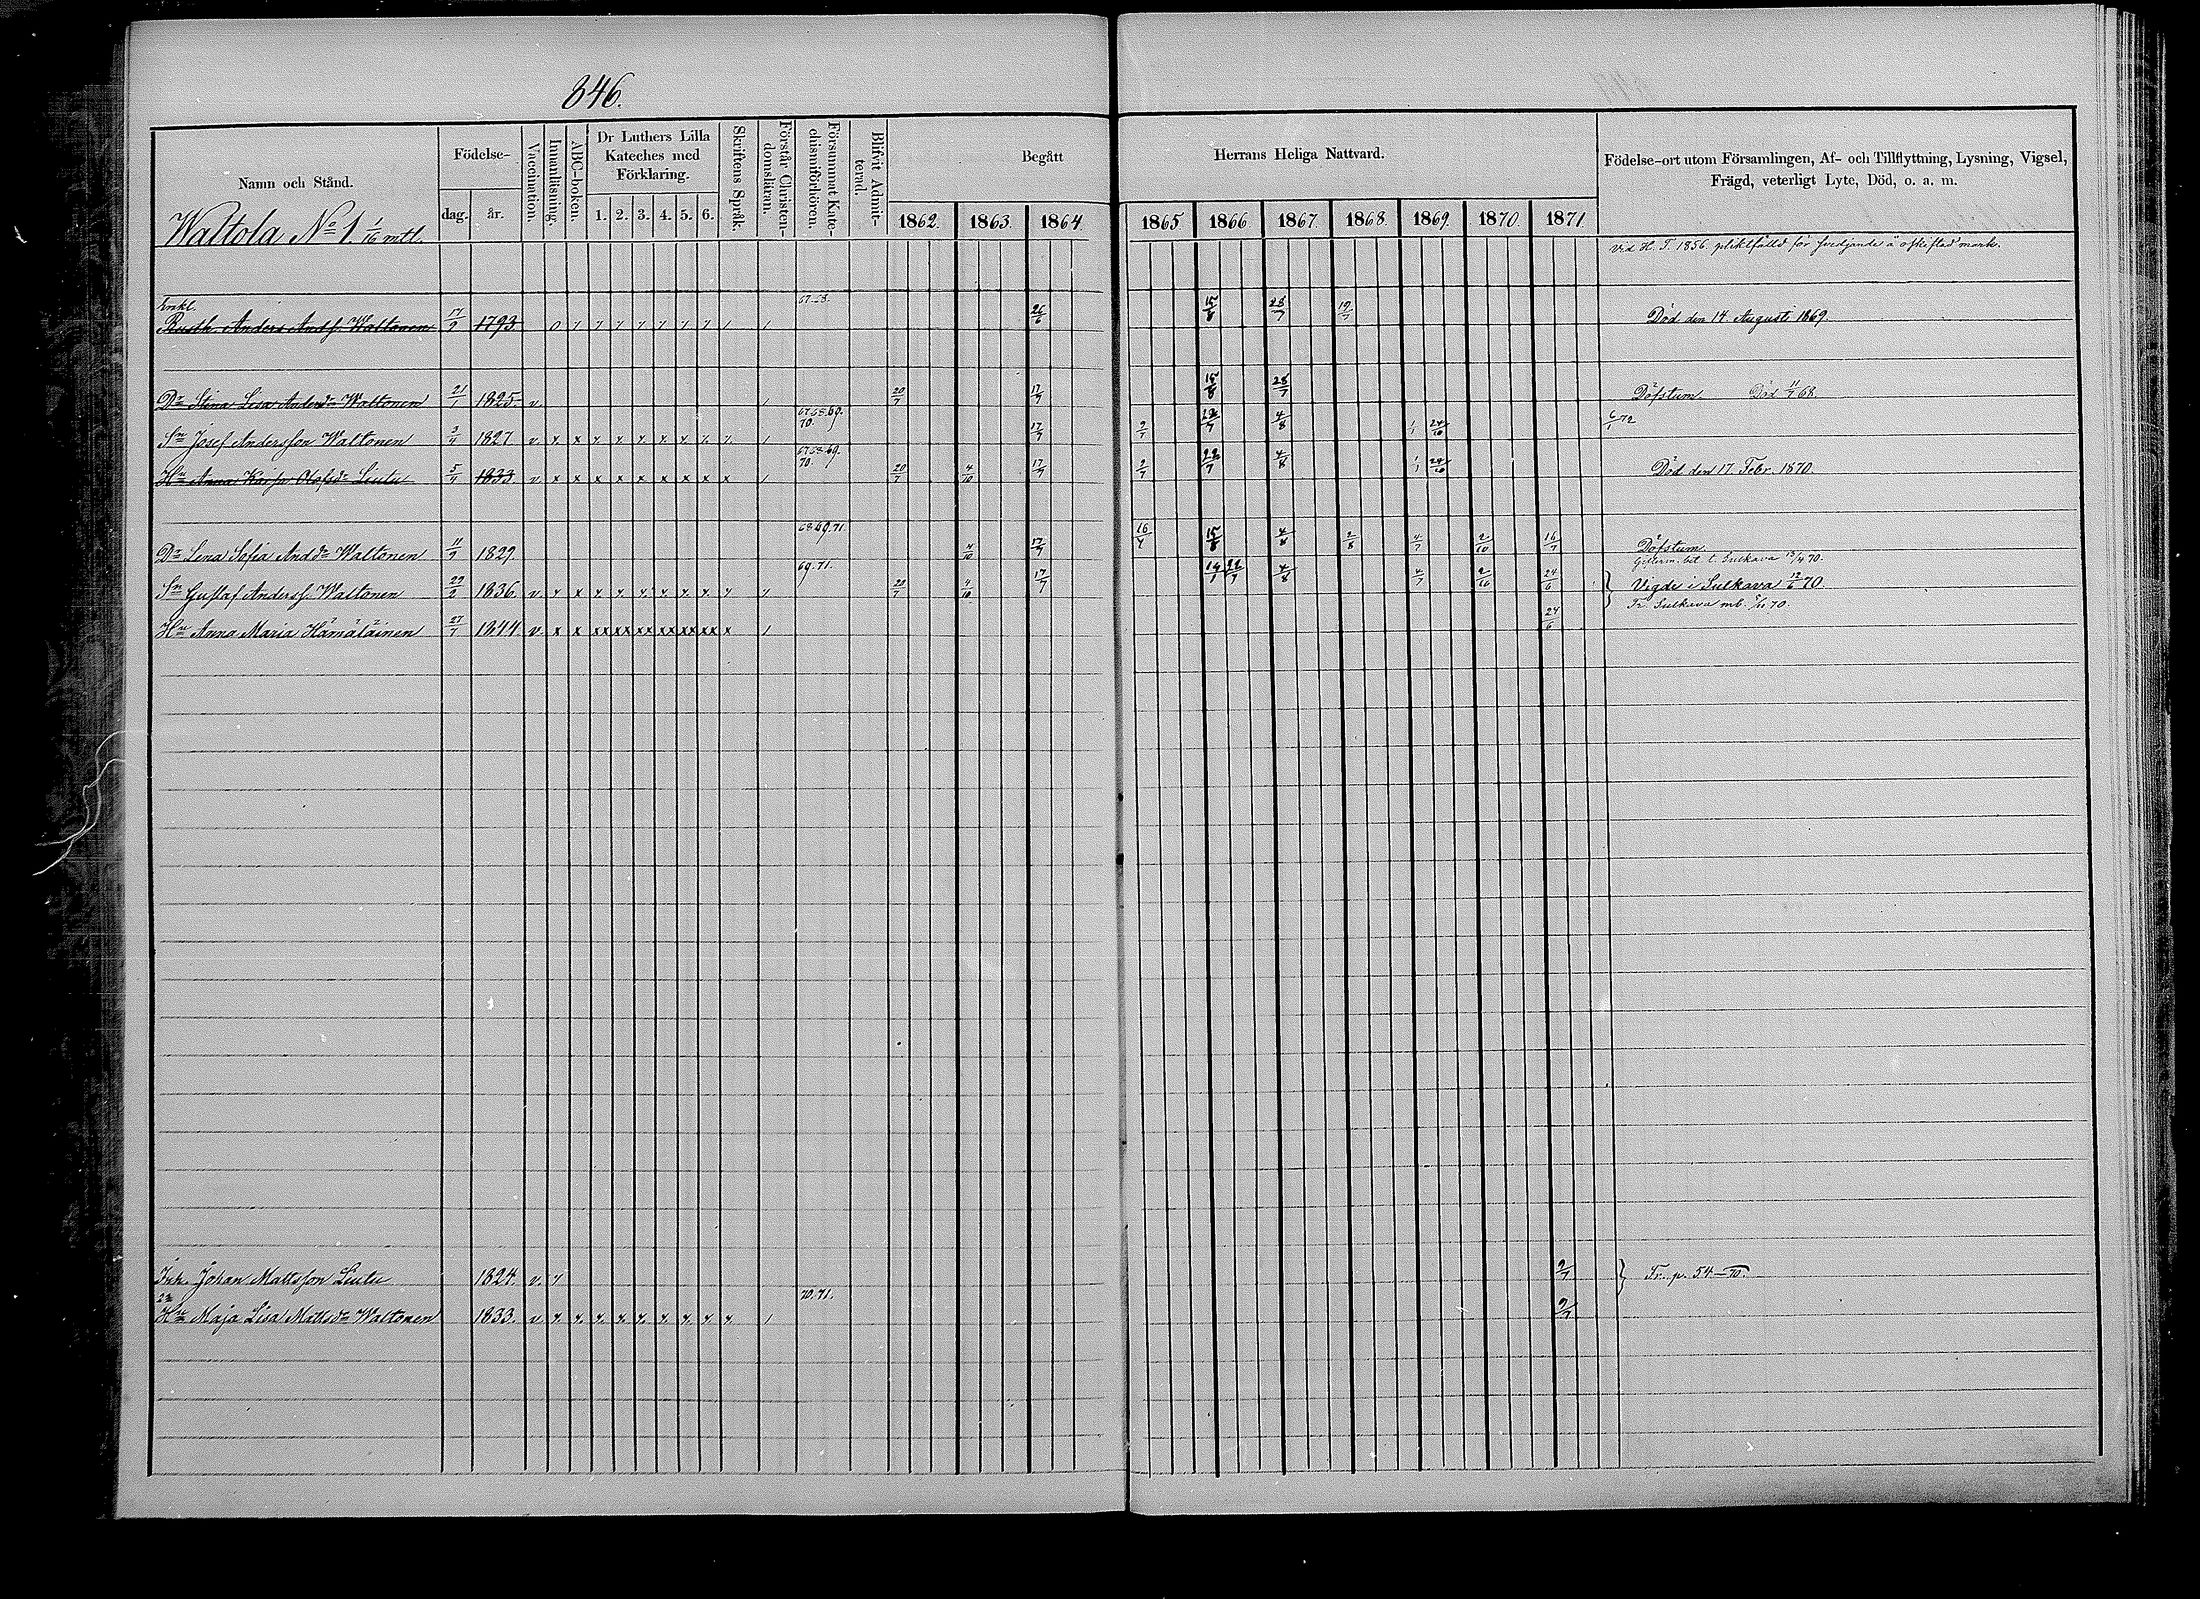 846.
Namn och Stånd. Födelse- dag. år. Vaccination. Innanläsning. ABC-boken. Dr Luthers Lilla Kateches med Förklaring. 1. 2. 3. 4. 5. 6. Skriftens Språk. Förstår Christendomsläran. Försummat Katechismiförhören. Blifvit Admitterad. Begått Herrans Heliga Nattvard. 1862. 1863. 1864. 1865. 1866. 1867. 1868. 1869. 1870. 1871. Födelse-ort utom Församlingen, Af- och Tillflyttning, Lysning, Vigsel, Frägd, veterligt Lyte, Död, o. a. m.
Waltola No 1. 1/16 mtl.
vid H. T. 1856 pliktfälld för svedjande å oskiftad mark.
Enkl.
Rusth. Anders Andsf. Waltonen 17/9 1793. 67.68. 26/6 15/8 28/7 19/7 Död den 14 Augusti 1869
Dr Stina Lisa Andersdr Waltonen 21/1 1825. v 20/7 17/7 15/8 28/7 Döfstum Död 11/4 68
Sn Josef Andersson Waltonen 3/4 1827 v x x x x x x x x x 67.68.69. 70. 17/7 9/7 22/7 4/8 1/1 24/10 6/1 72
Hu Anna Kaisa Olofsdr Liutu 5/4 1833. v x x x x x x x x x 67.68.69. 70. 20/7 4/10 17/7 9/7 22/7 4/8 1/1 24/10 Död den 17 Febr. 1870.
Dr Lena Sofia Andsdr Waltonen 11/9 1829 68.69.71. 4/10 17/7 16/7 15/8 4/8 2/8 4/7 2/10 16/7 Döfstum
Sn Gustaf Anderss. Waltonen 29/2 1836 v x x x x x x x x x 69.71. 20/7 4/10 17/7 14/1 22/7 4/8 4/7 2/10 24/6 Gifterm. bet. t. Sulkava 13/4 70.
Vigde i Sulkava 12/6 70.
Hu Anna Maria Hämäläinen 27/7 1844 v x x xx xx xx xx xx xx x 24/6 Fr. Sulkava mb. 5/11 70.
Inh. Johan Mattsson Liutu 1824. v. x 9/7 Fr. p. 54-70.
2a
Hu Maja Lisa Mattsdr Waltonen 1833. v x x x x x x x x x 70.71. 9/7